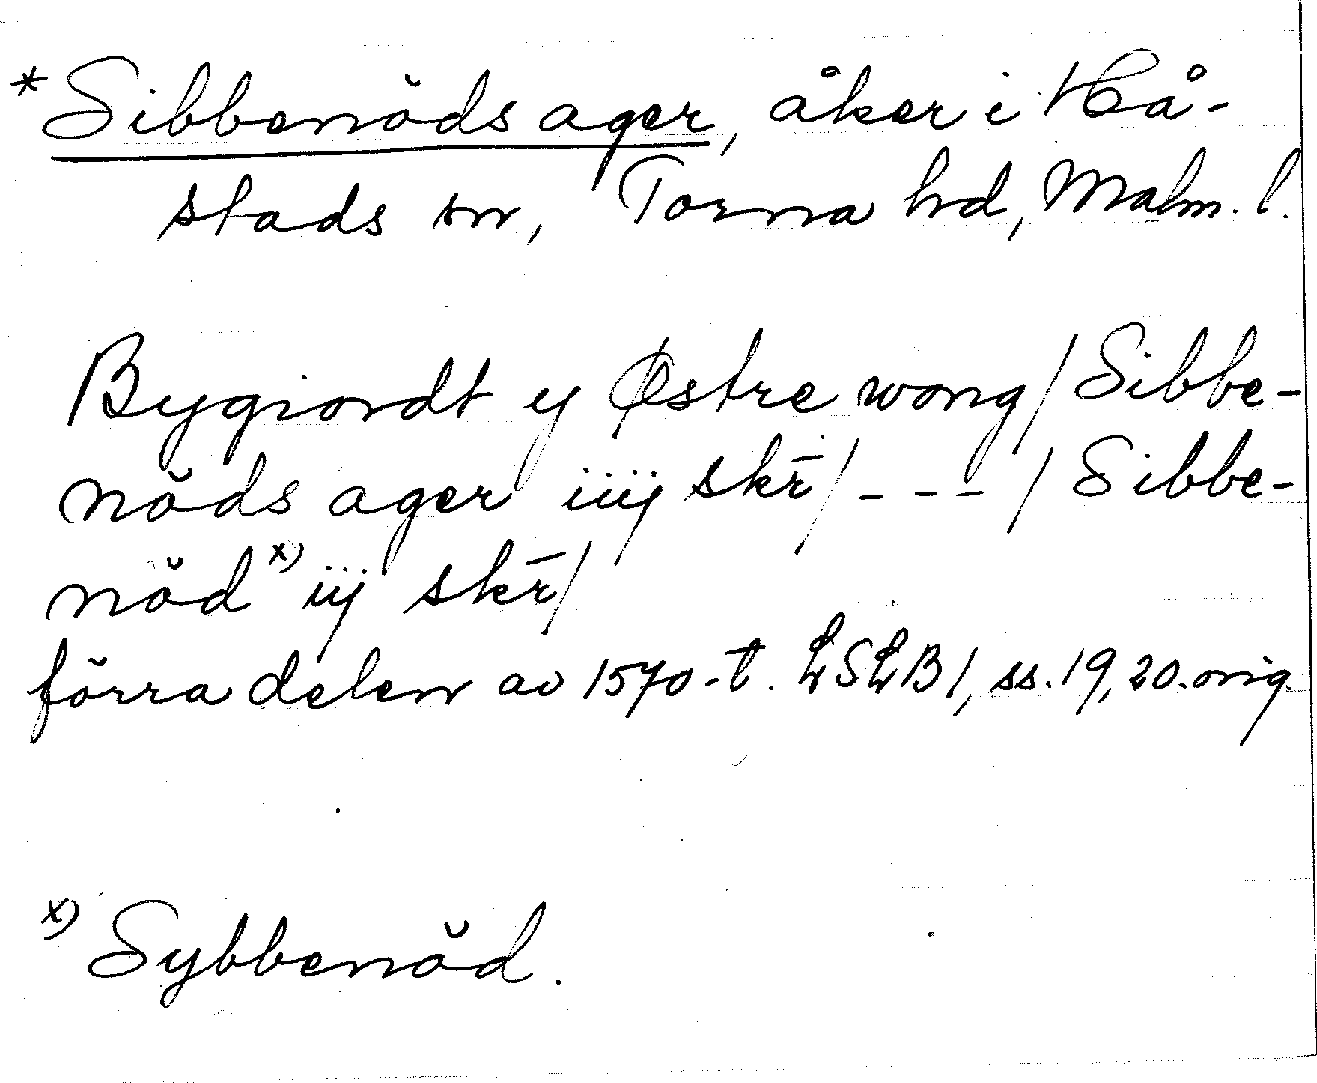 *Sibbenöds ager, åker i Hå-
stads sn, Torna hd, Malm. l.
Bygiordt y Østre wong / Sibbe-
nöds ager iiij skr̄ / - - - / Sibbe-
nöd x) iij skr̄ /
förra delen av 1570-t. LSLB 1, ss. 19, 20. orig.
x) Sybbenöd.